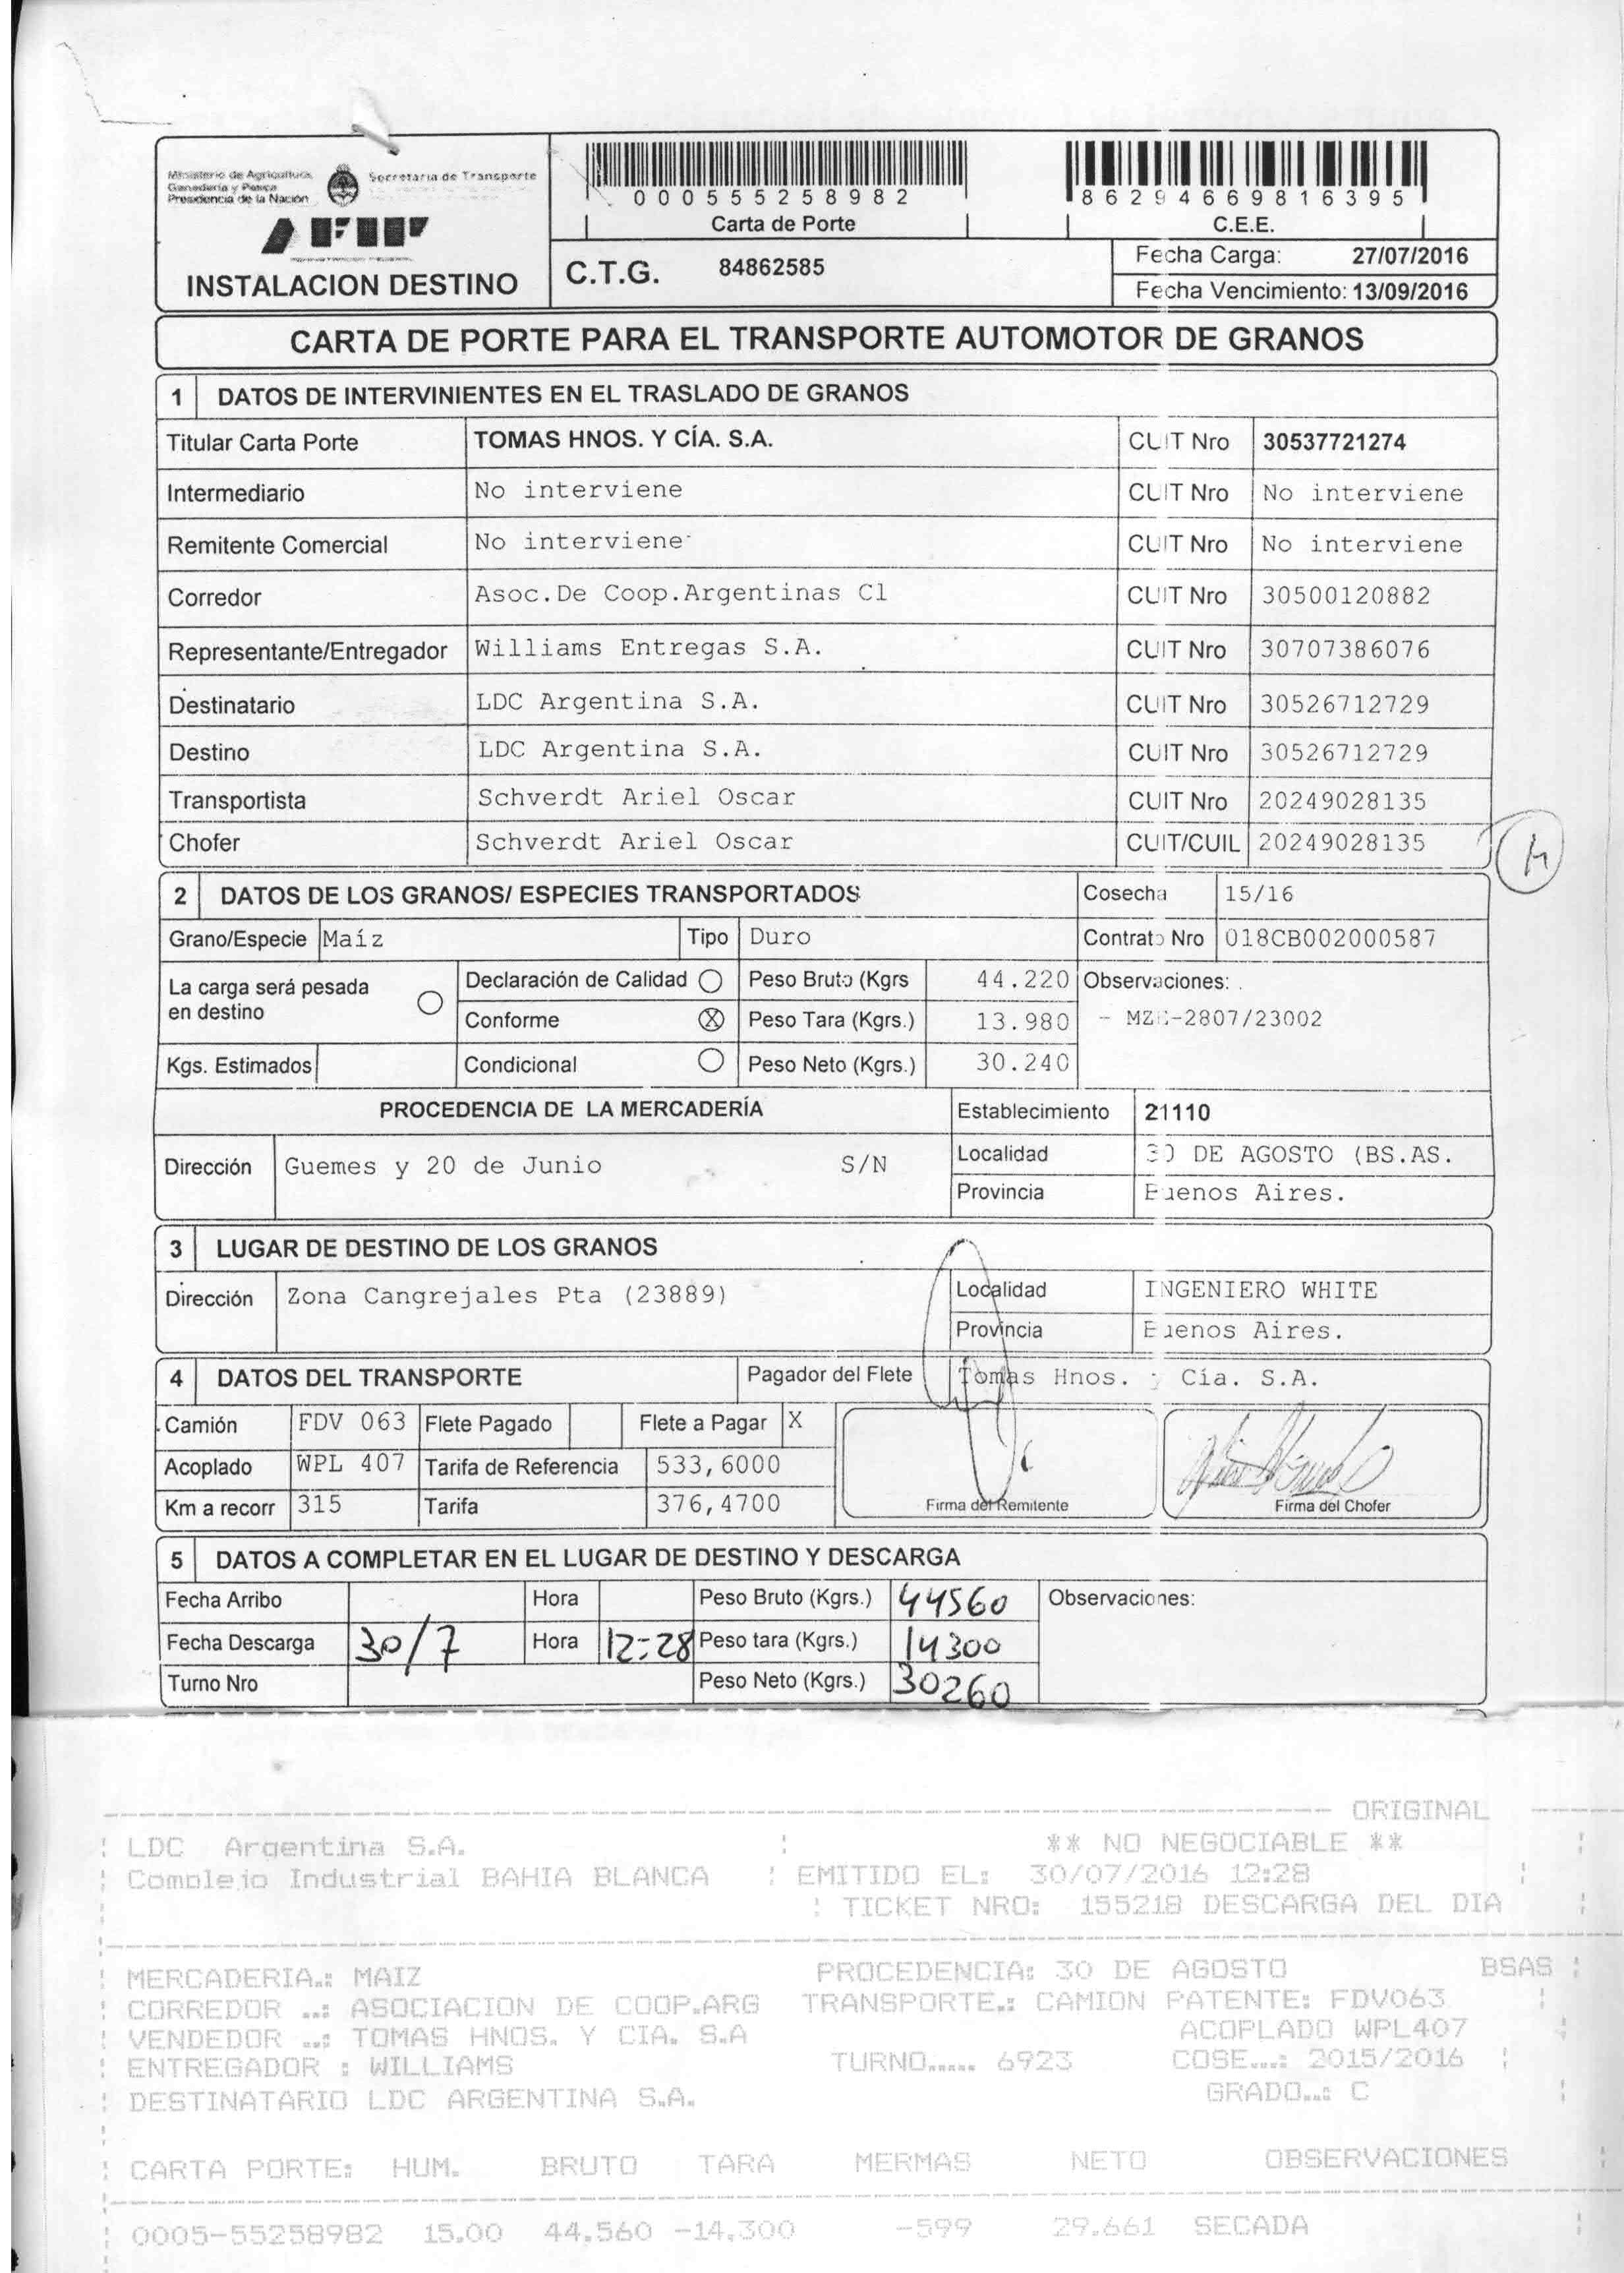 Ministerio de Agricultura, Ganadería y Pesca Presidencia de la Nación
Secretaría de Transporte
AFIP
INSTALACION DESTINO
000555258982
Carta de Porte
86294669816395
C.E.E.
C.T.G. 84862585
Fecha Carga: 27/07/2016
Fecha Vencimiento: 13/09/2016
CARTA DE PORTE PARA EL TRANSPORTE AUTOMOTOR DE GRANOS
1 DATOS DE INTERVINIENTES EN EL TRASLADO DE GRANOS
Titular Carta Porte TOMAS HNOS. Y CÍA. S.A. CUIT Nro 30537721274
Intermediario No interviene CUIT Nro No interviene
Remitente Comercial No interviene CUIT Nro No interviene
Corredor Asoc.De Coop.Argentinas Cl CUIT Nro 30500120882
Representante/Entregador Williams Entregas S.A. CUIT Nro 30707386076
Destinatario LDC Argentina S.A. CUIT Nro 30526712729
Destino LDC Argentina S.A. CUIT Nro 30526712729
Transportista Schverdt Ariel Oscar CUIT Nro 20249028135
Chofer Schverdt Ariel Oscar CUIT/CUIL 20249028135
2 DATOS DE LOS GRANOS/ ESPECIES TRANSPORTADOS Cosecha 15/16
Grano/Especie Maíz Tipo Duro Contrato Nro 018CB002000587
La carga será pesada en destino Declaración de Calidad Peso Bruto (Kgrs 44.220 Observaciones:
Conforme X Peso Tara (Kgrs.) 13.980 - -2807/23002
Kgs. Estimados Condicional Peso Neto (Kgrs.) 30.240
PROCEDENCIA DE LA MERCADERÍA Establecimiento 21110
Dirección Guemes y 20 de Junio S/N Localidad 30 DE AGOSTO (BS.AS.
Provincia Buenos Aires.
3 LUGAR DE DESTINO DE LOS GRANOS
Dirección Zona Cangrejales Pta (23889) Localidad INGENIERO WHITE
Provincia Buenos Aires.
4 DATOS DEL TRANSPORTE Pagador del Flete Tomas Hnos. y Cía. S.A.
Camión FDV 063 Flete Pagado Flete a Pagar X
Acoplado WPL 407 Tarifa de Referencia 533,6000
Km a recorr 315 Tarifa 376,4700 Firma del Remitente Firma del Chofer
5 DATOS A COMPLETAR EN EL LUGAR DE DESTINO Y DESCARGA
Fecha Arribo Hora Peso Bruto (Kgrs.) 44560 Observaciones:
Fecha Descarga 30/7 Hora 12:28 Peso tara (Kgrs.) 14300
Turno Nro Peso Neto (Kgrs.) 30260
ORIGINAL
LDC Argentina S.A. ** NO NEGOCIABLE **
Complejo Industrial BAHIA BLANCA EMITIDO EL: 30/07/2016 12:28
TICKET NRO: 155218 DESCARGA DEL DIA
MERCADERIA.: MAIZ PROCEDENCIA: 30 DE AGOSTO BSAS
CORREDOR ..: ASOCIACION DE COOP.ARG TRANSPORTE.: CAMION PATENTE: FDV063
VENDEDOR ..: TOMAS HNOS. Y CIA. S.A ACOPLADO WPL407
ENTREGADOR : WILLIAMS TURNO..... 6923 COSE...: 2015/2016
DESTINATARIO LDC ARGENTINA S.A. GRADO..: C
CARTA PORTE: HUM. BRUTO TARA MERMAS NETO OBSERVACIONES
0005-55258982 15.00 44.560 -14.300 -599 29.661 SECADA